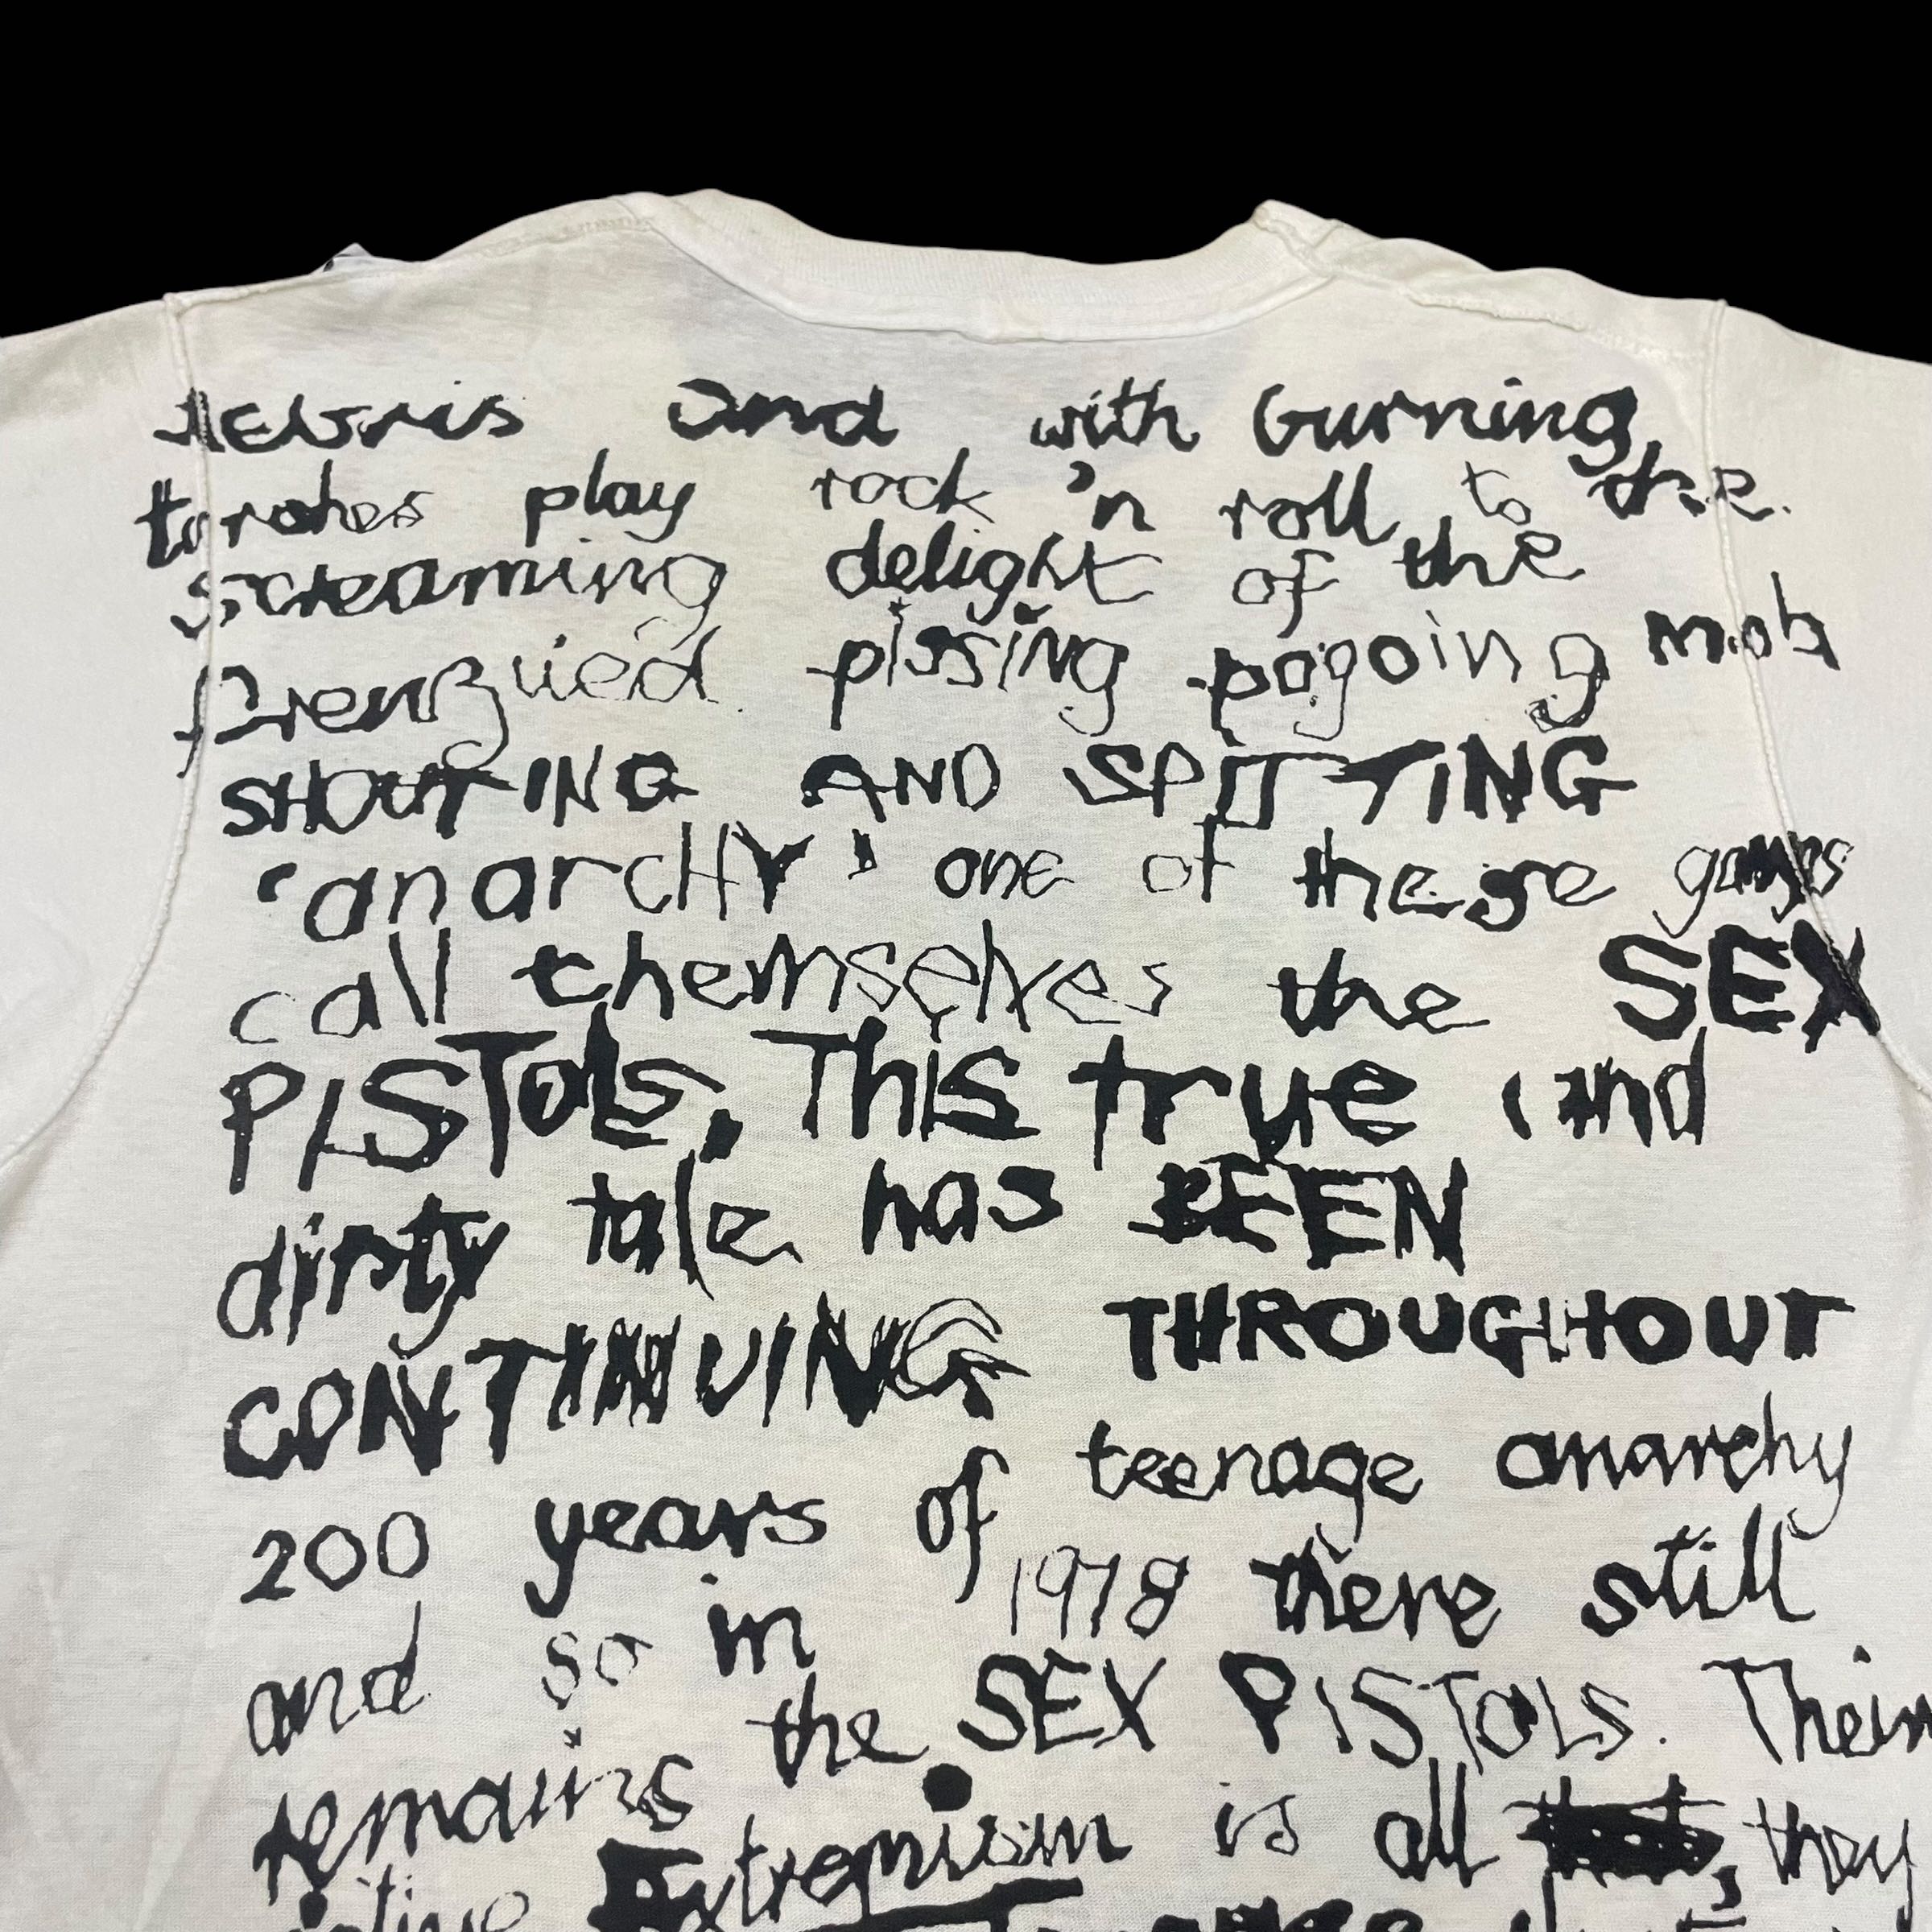 debris and with burning
torches play rock 'n roll to the
screaming delight of the
frenzied pissing pogoing mob
SHOUTING AND SPITTING
'anarchy' one of these gangs
call themselves the SEX
PISTOLS. This true and
dirty tale has BEEN
CONTINUING THROUGHOUT
200 years of teenage anarchy
and so in 1978 there still
remains the SEX PISTOLS. Their
active Extremism is all they